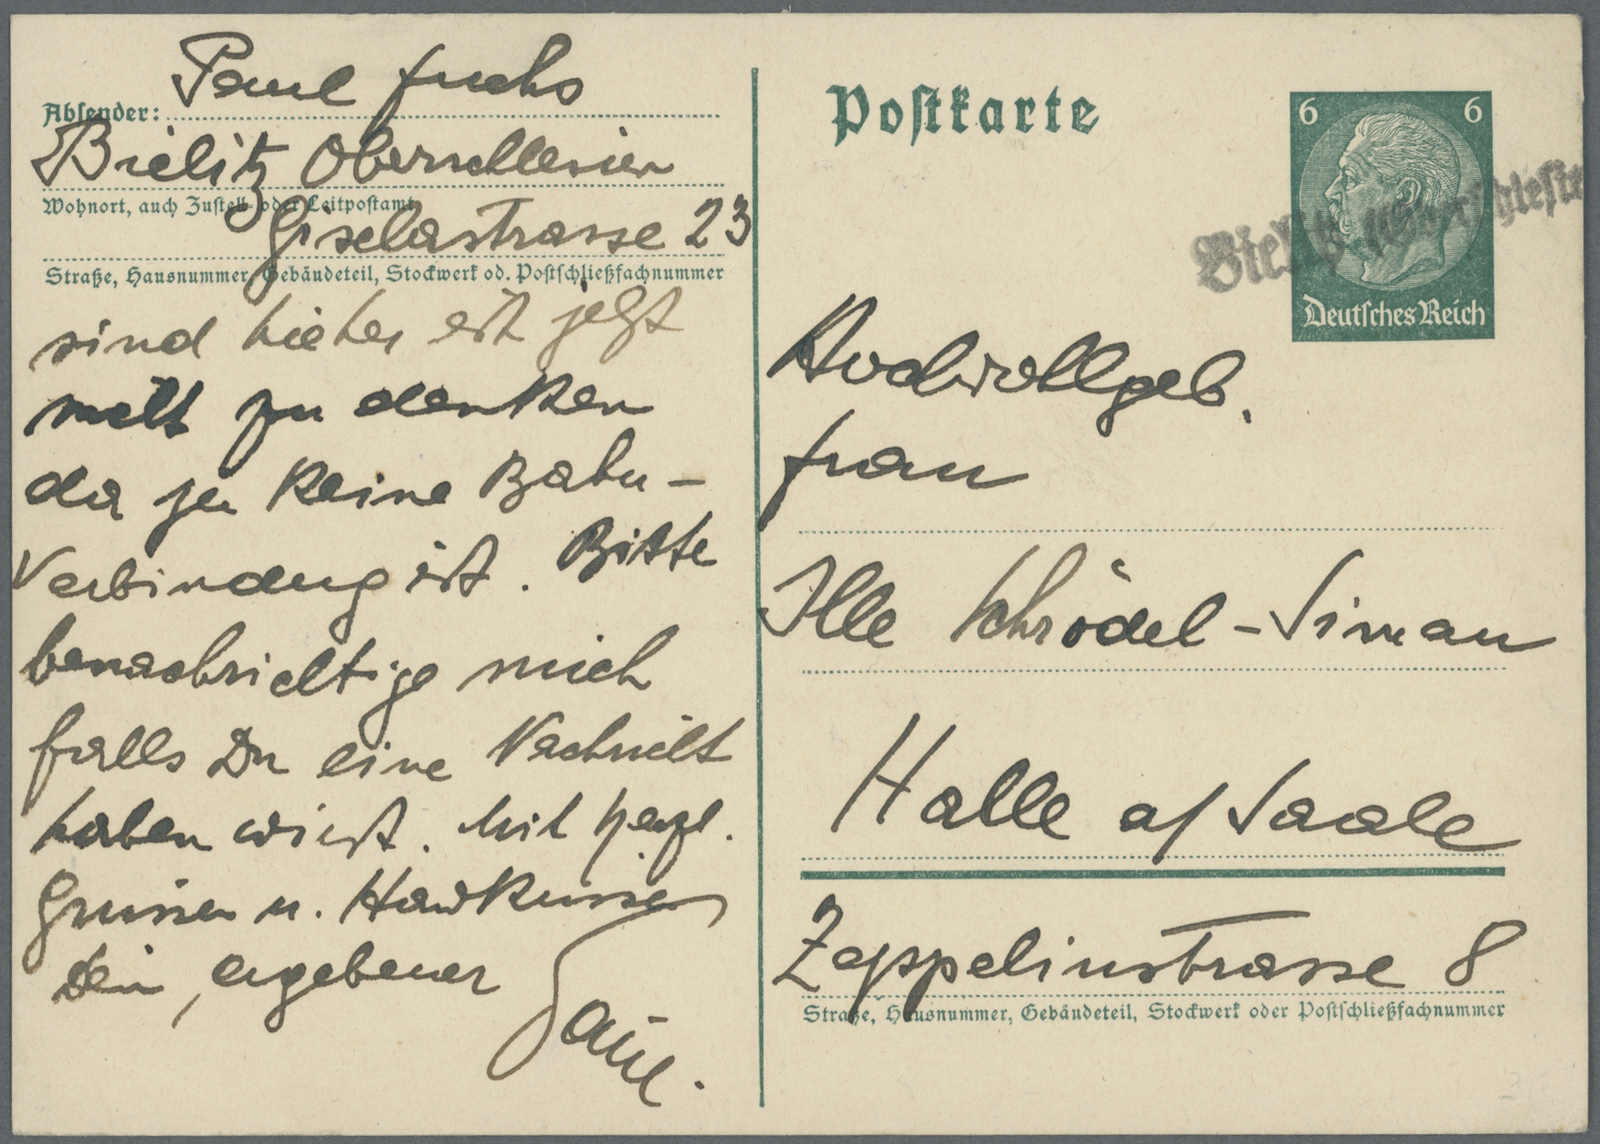 Paul Fuchs
Absender:
Bielitz Oberschlesien
Wohnort, auch Zustell- oder Leitpostamt
Giselastrasse 23
Straße, Hausnummer, Gebäudeteil, Stockwerk od. Postschließfachnummer
sind hieher ist jetzt
nicht zu denken
da ja keine Bahn-
verbindung ist. Bitte
benachrichtige mich
falls Du eine Nachricht
haben wirst. Mit herzl.
Grüssen u. Handküssen
Dein ergebener
Paul.
Postkarte
6 6
Deutsches Reich
Bielitz (Oberschlesie
Hochwollgeb.
Frau
Ille Schrödel-Simau
Halle a/Saale
Zeppelinstrasse 8
Straße, Hausnummer, Gebäudeteil, Stockwerk oder Postschließfachnummer